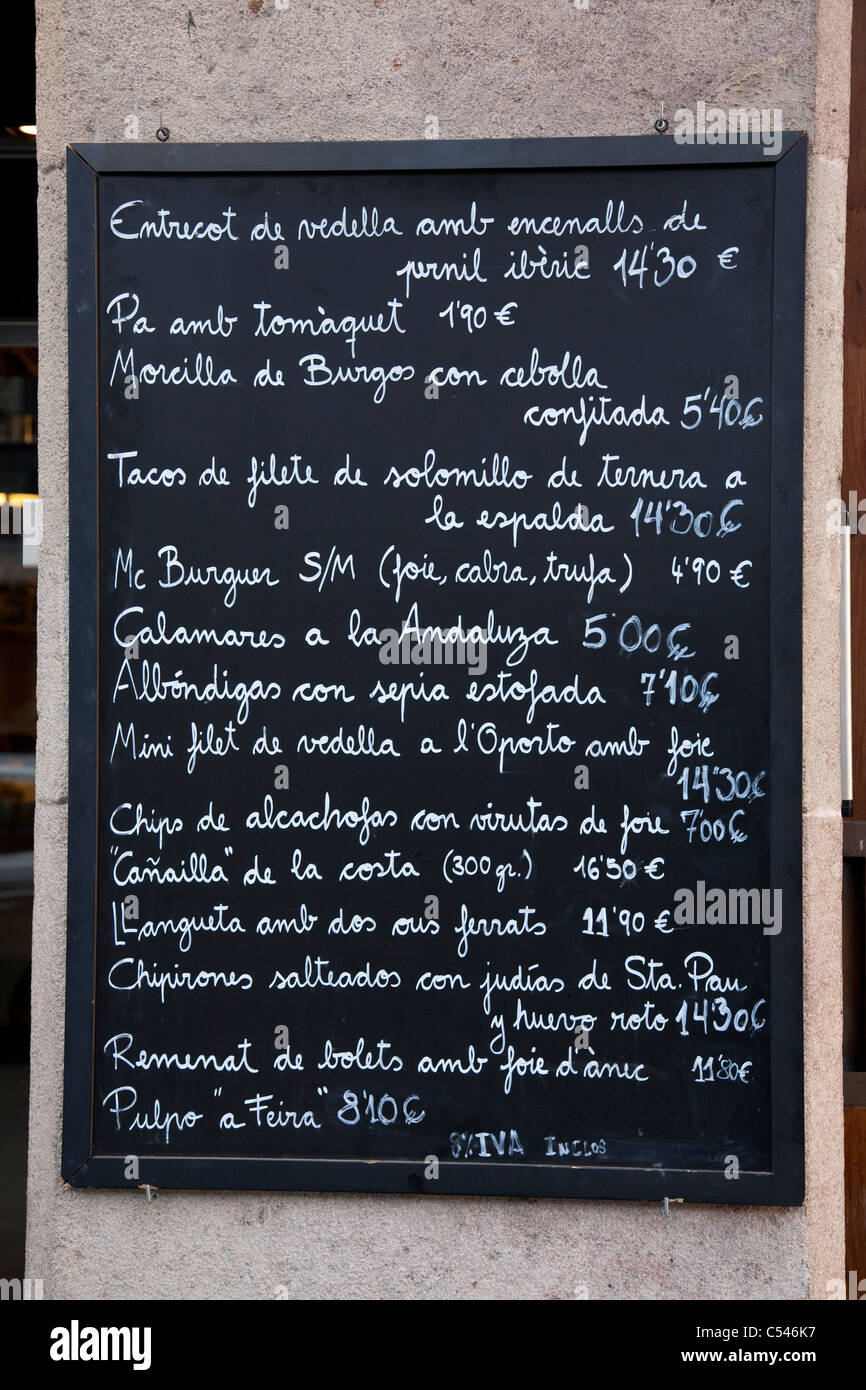 Entrecot de vedella amb encenalls de
pernil ibèric 14'30 €
Pa amb tomàquet 1'90 €
Morcilla de Burgos con cebolla
confitada 5'40€
Tacos de filete de solomillo de ternera a
la espalda 14'30€
Mc Burguer S/M (foie, cabra, trufa) 4'90 €
Calamares a la Andaluza 5'00€
Albóndigas con sepia estofada 7'10€
Mini filet de vedella a l'Oporto amb foie
14'30€
Chips de alcachofas con virutas de foie 7'00€
"Cañailla" de la costa (300 gr.) 16'50 €
LLangueta amb dos ous ferrats 11'90 €
Chipirones salteados con judías de Sta. Pau
y huevo roto 14'30€
Remenat de bolets amb foie d'ànec 11'80€
Pulpo "a Feira" 8'10€
8% IVA INCLOS
alamy
Image ID: C546K7
www.alamy.com